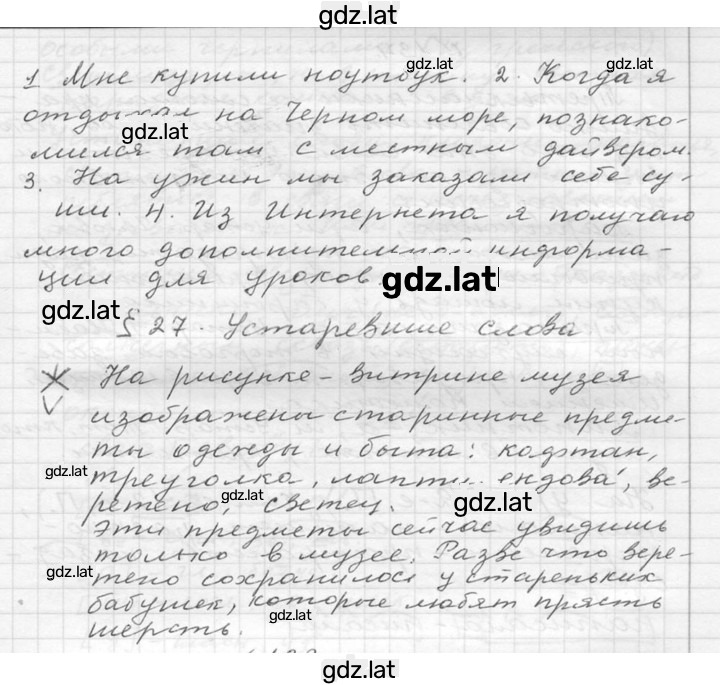 gdz.lat
1 Мне купили ноутбук. 2. Когда я
gdz.lat gdz.lat
отдыхал на Черном море, познако-
gdz.lat
мился там с местным дайвером.
3. На ужин мы заказали себе су-
ши. 4. Из Интернета я получаю
много дополнительной информа-
ции для уроков.
gdz.lat
gdz.lat
§ 27. Устаревшие слова
На рисунке - витрине музея
изображены старинные предме-
ты одежды и быта: кафтан,
gdz.lat
треуголка, лапти, ендова, ве-
gdz.lat gdz.lat
ретено, светец.
Эти предметы сейчас увидишь
только в музее. Разве что вере-
gdz.lat
тено сохранилось у стареньких
бабушек, которые любят прясть
шерсть.
gdz.lat